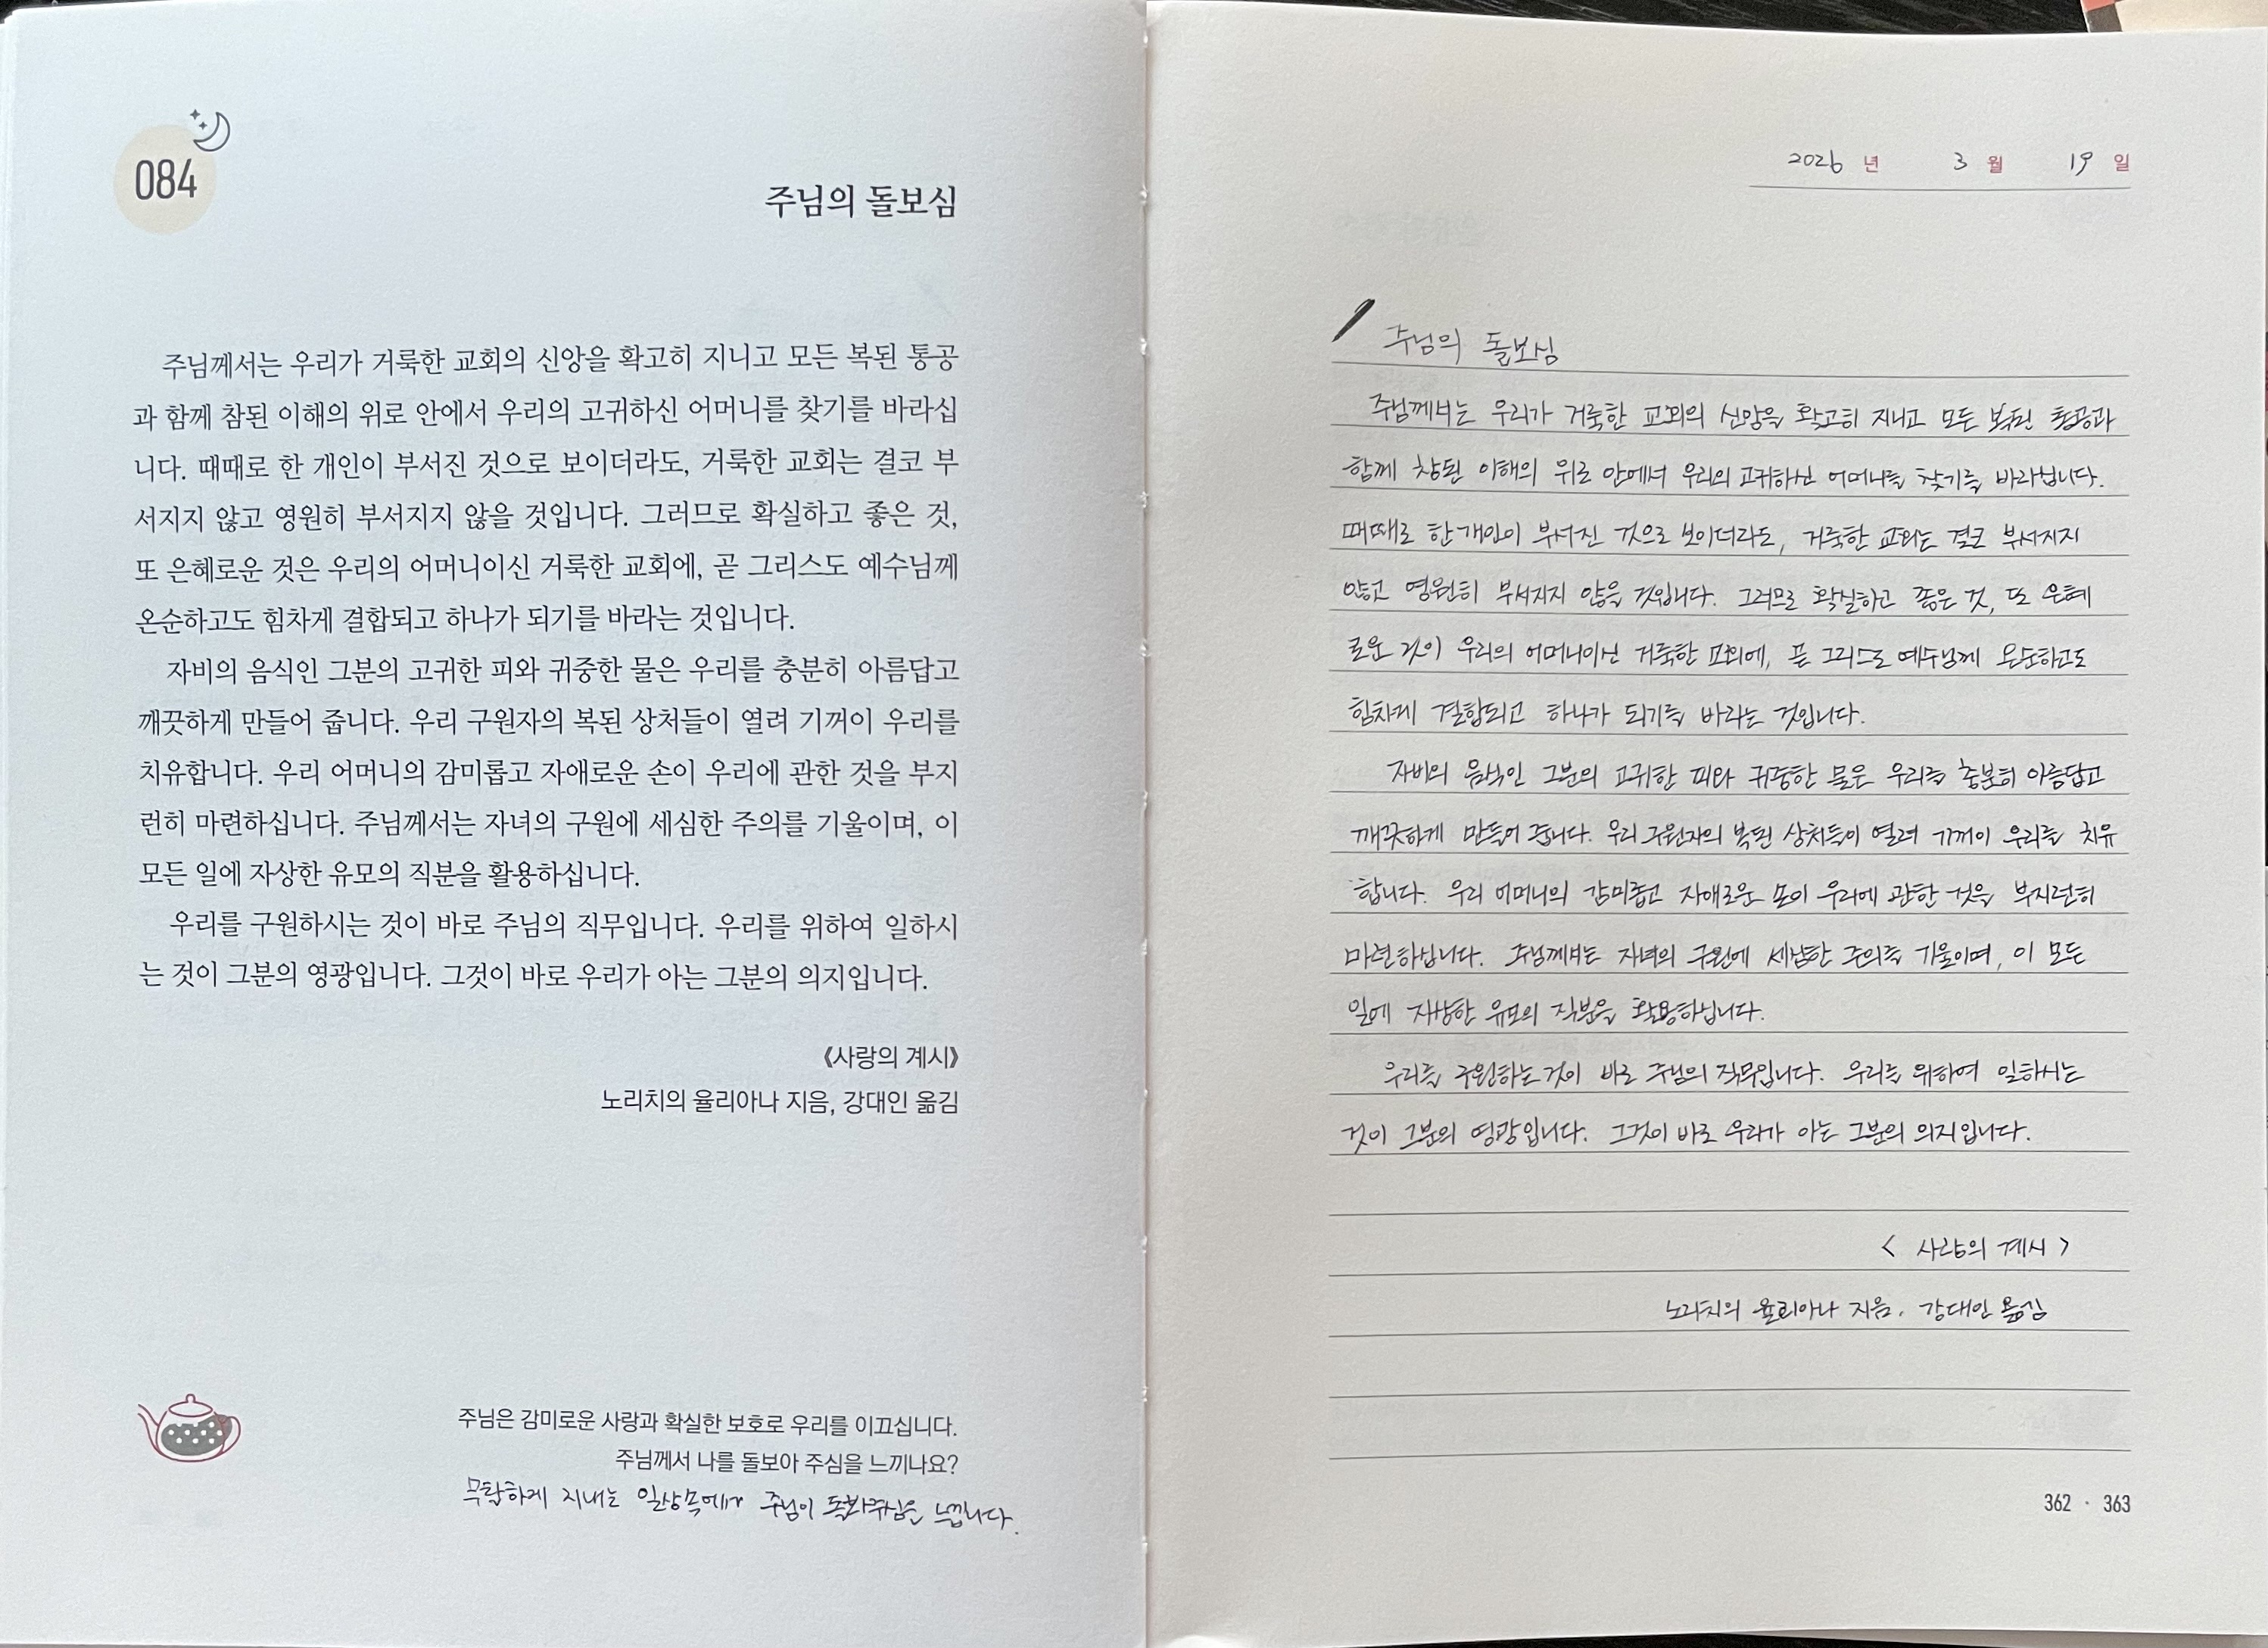 084
주님의 돌보심
주님께서는 우리가 거룩한 교회의 신앙을 확고히 지니고 모든 복된 통공
과 함께 참된 이해의 위로 안에서 우리의 고귀하신 어머니를 찾기를 바라십
니다. 때때로 한 개인이 부서진 것으로 보이더라도, 거룩한 교회는 결코 부
서지지 않고 영원히 부서지지 않을 것입니다. 그러므로 확실하고 좋은 것,
또 은혜로운 것은 우리의 어머니이신 거룩한 교회에, 곧 그리스도 예수님께
온순하고도 힘차게 결합되고 하나가 되기를 바라는 것입니다.
자비의 음식인 그분의 고귀한 피와 귀중한 물은 우리를 충분히 아름답고
깨끗하게 만들어 줍니다. 우리 구원자의 복된 상처들이 열려 기꺼이 우리를
치유합니다. 우리 어머니의 감미롭고 자애로운 손이 우리에 관한 것을 부지
런히 마련하십니다. 주님께서는 자녀의 구원에 세심한 주의를 기울이며, 이
모든 일에 자상한 유모의 직분을 활용하십니다.
우리를 구원하시는 것이 바로 주님의 직무입니다. 우리를 위하여 일하시
는 것이 그분의 영광입니다. 그것이 바로 우리가 아는 그분의 의지입니다.
《사랑의 계시》
노리치의 율리아나 지음, 강대인 옮김
주님은 감미로운 사랑과 확실한 보호로 우리를 이끄십니다.
주님께서 나를 돌보아 주심을 느끼나요?
무탈하게 지내는 일상속에서 주님이 돌봐주심을 느낍니다.
2026 년 3 월 19 일
주님의 돌보심
주님께서는 우리가 거룩한 교회의 신앙을 확고히 지니고 모든 복된 통공과
함께 참된 이해의 위로 안에서 우리의 고귀하신 어머니를 찾기를 바라십니다.
때때로 한 개인이 부서진 것으로 보이더라도, 거룩한 교회는 결코 부서지지
않고 영원히 부서지지 않을 것입니다. 그러므로 확실하고 좋은 것, 또 은혜
로운 것이 우리의 어머니이신 거룩한 교회에, 곧 그리스도 예수님께 온순하고도
힘차게 결합되고 하나가 되기를 바라는 것입니다.
자비의 음식인 그분의 고귀한 피와 귀중한 물은 우리를 충분히 아름답고
깨끗하게 만들어 줍니다. 우리 구원자의 복된 상처들이 열려 기꺼이 우리를 치유
합니다. 우리 어머니의 감미롭고 자애로운 손이 우리에 관한 것을 부지런히
마련하십니다. 주님께서는 자녀의 구원에 세심한 주의를 기울이며, 이 모든
일에 자상한 유모의 직분을 활용하십니다.
우리를 구원하는 것이 바로 주님의 직무입니다. 우리를 위하여 일하시는
것이 그분의 영광입니다. 그것이 바로 우리가 아는 그분의 의지입니다.
< 사랑의 계시 >
노리치의 율리아나 지음. 강대인 옮김
362 · 363